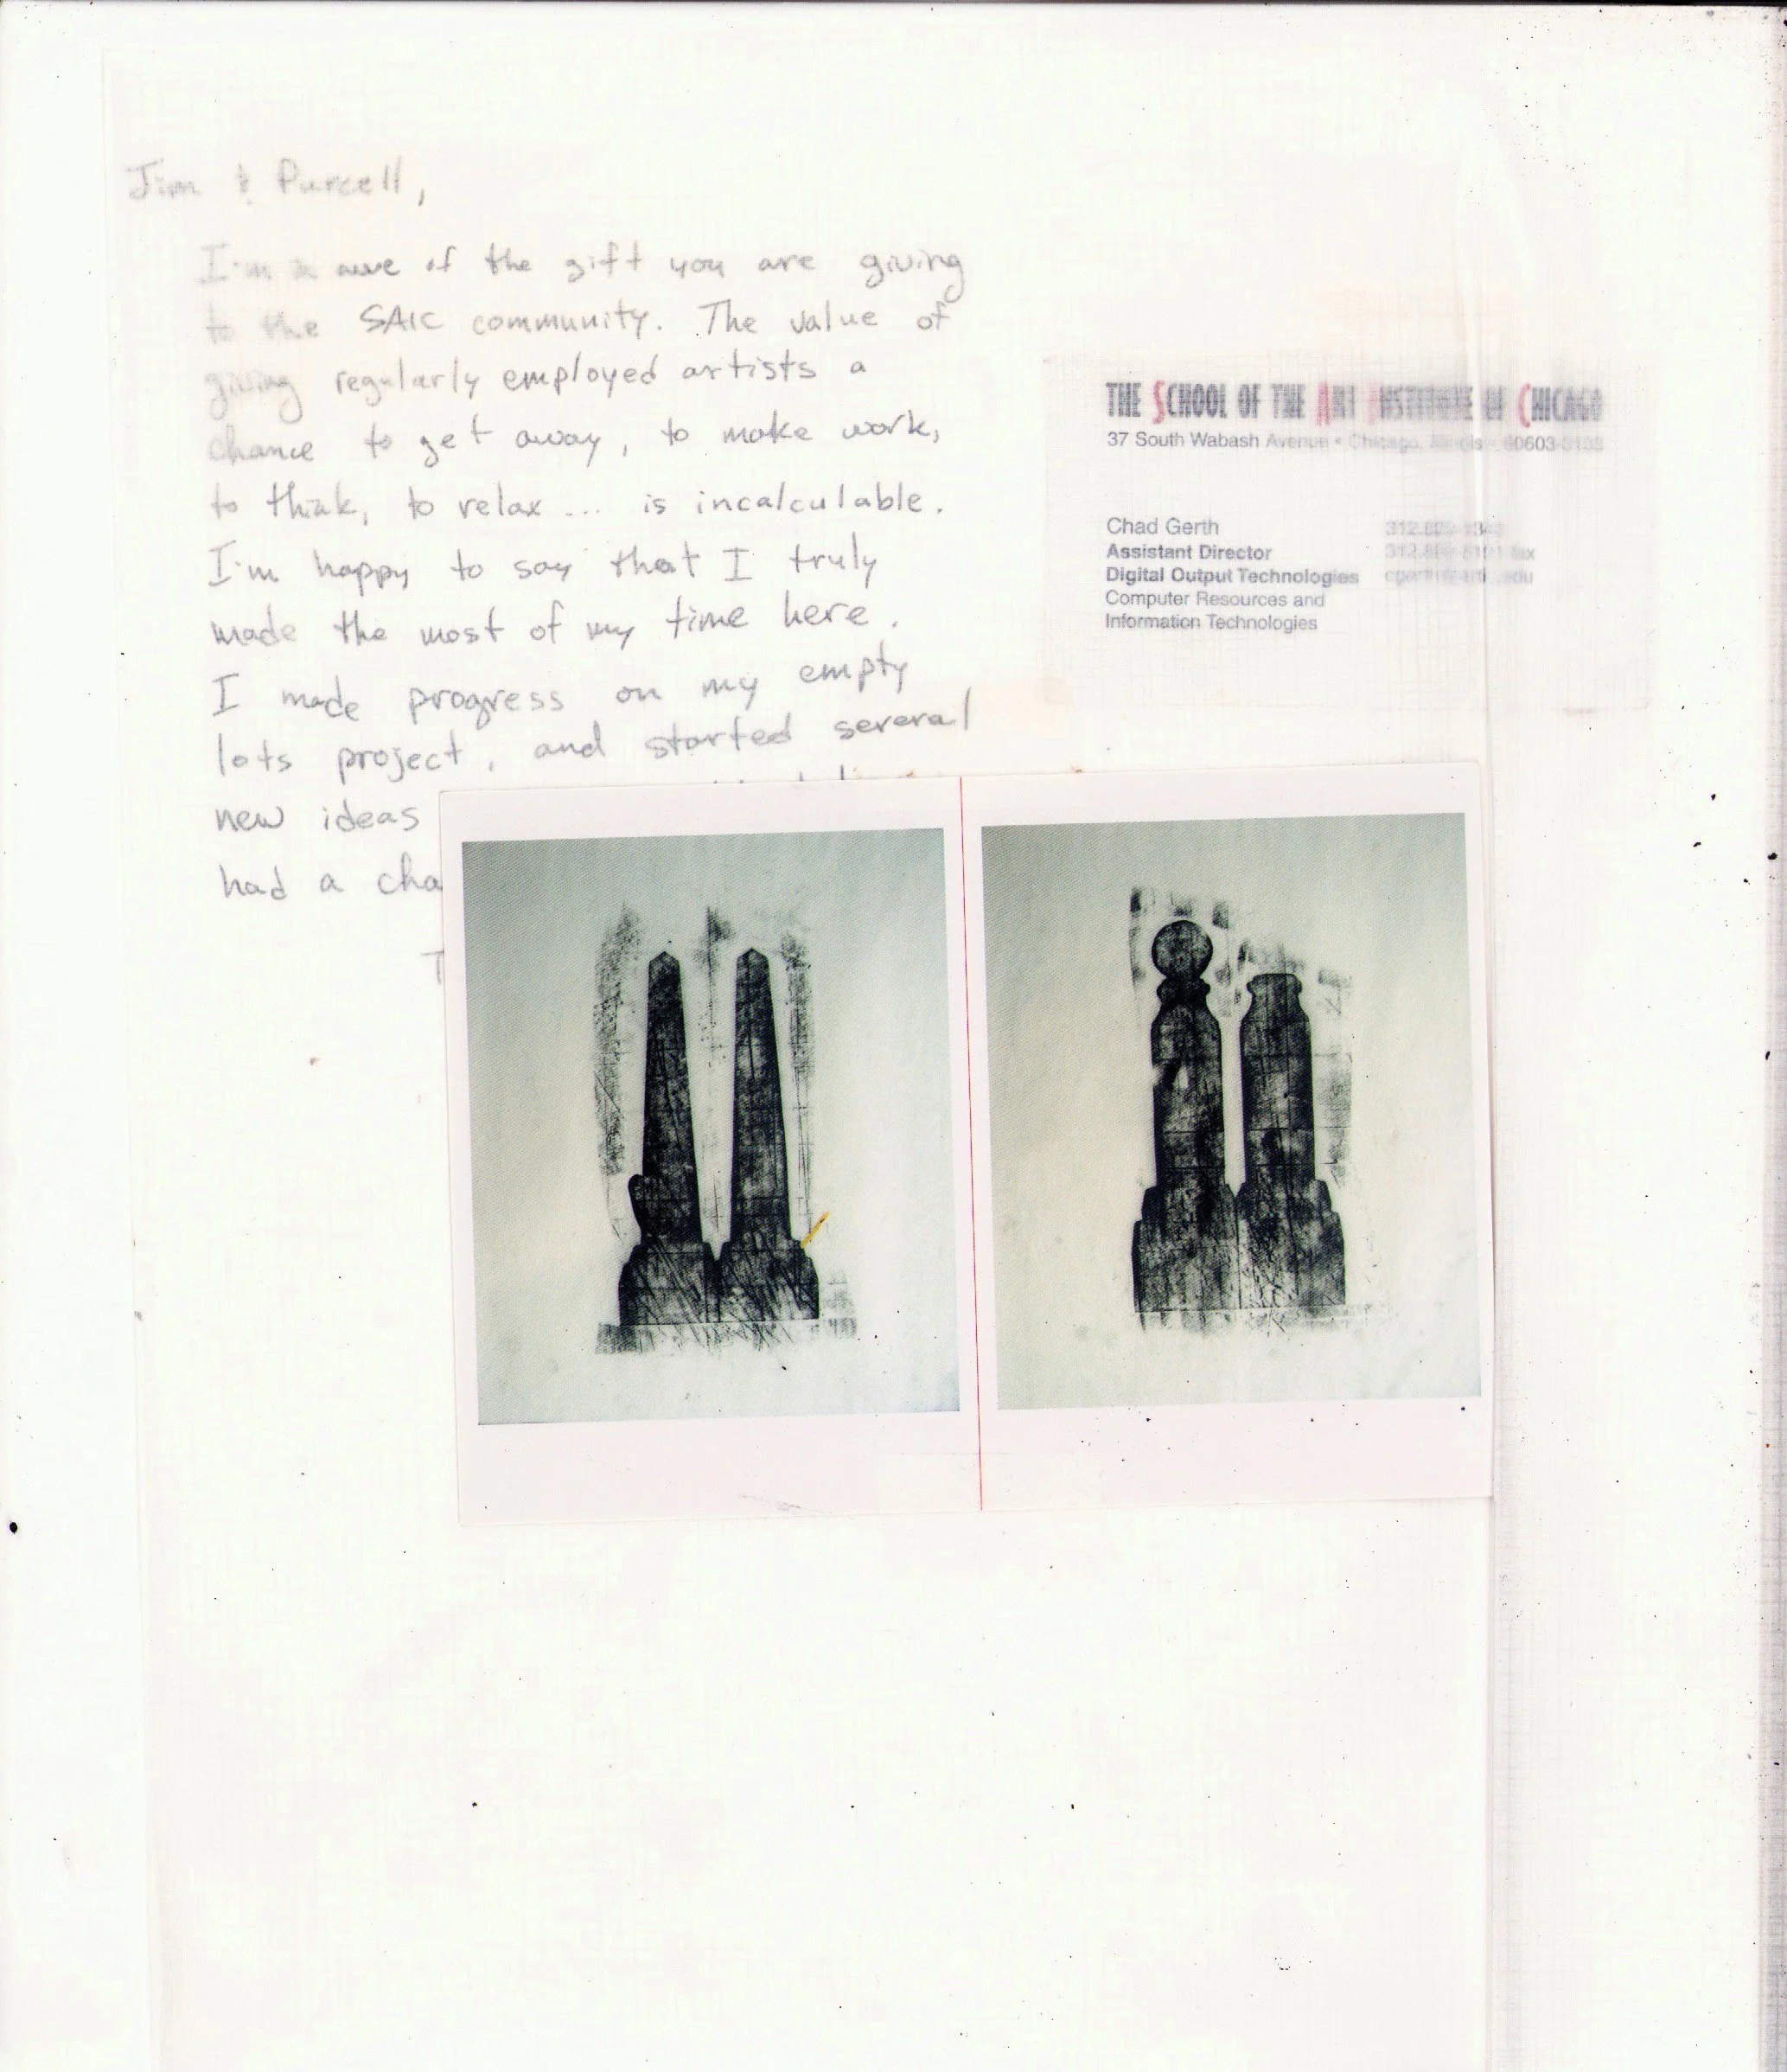 Jim & Purcell,
I'm in awe of the gift you are giving
to the SAIC community. The value of
giving regularly employed artists a
chance to get away, to make work,
to think, to relax ... is incalculable.
I'm happy to say that I truly
made the most of my time here.
I made progress on my empty
lots project, and started several
new ideas
had a cha
T
THE SCHOOL OF THE ART INSTITUTE OF CHICAGO
37 South Wabash Avenue • Chicago, Illinois 60603-3103
Chad Gerth
Assistant Director
Digital Output Technologies
Computer Resources and
Information Technologies
fax